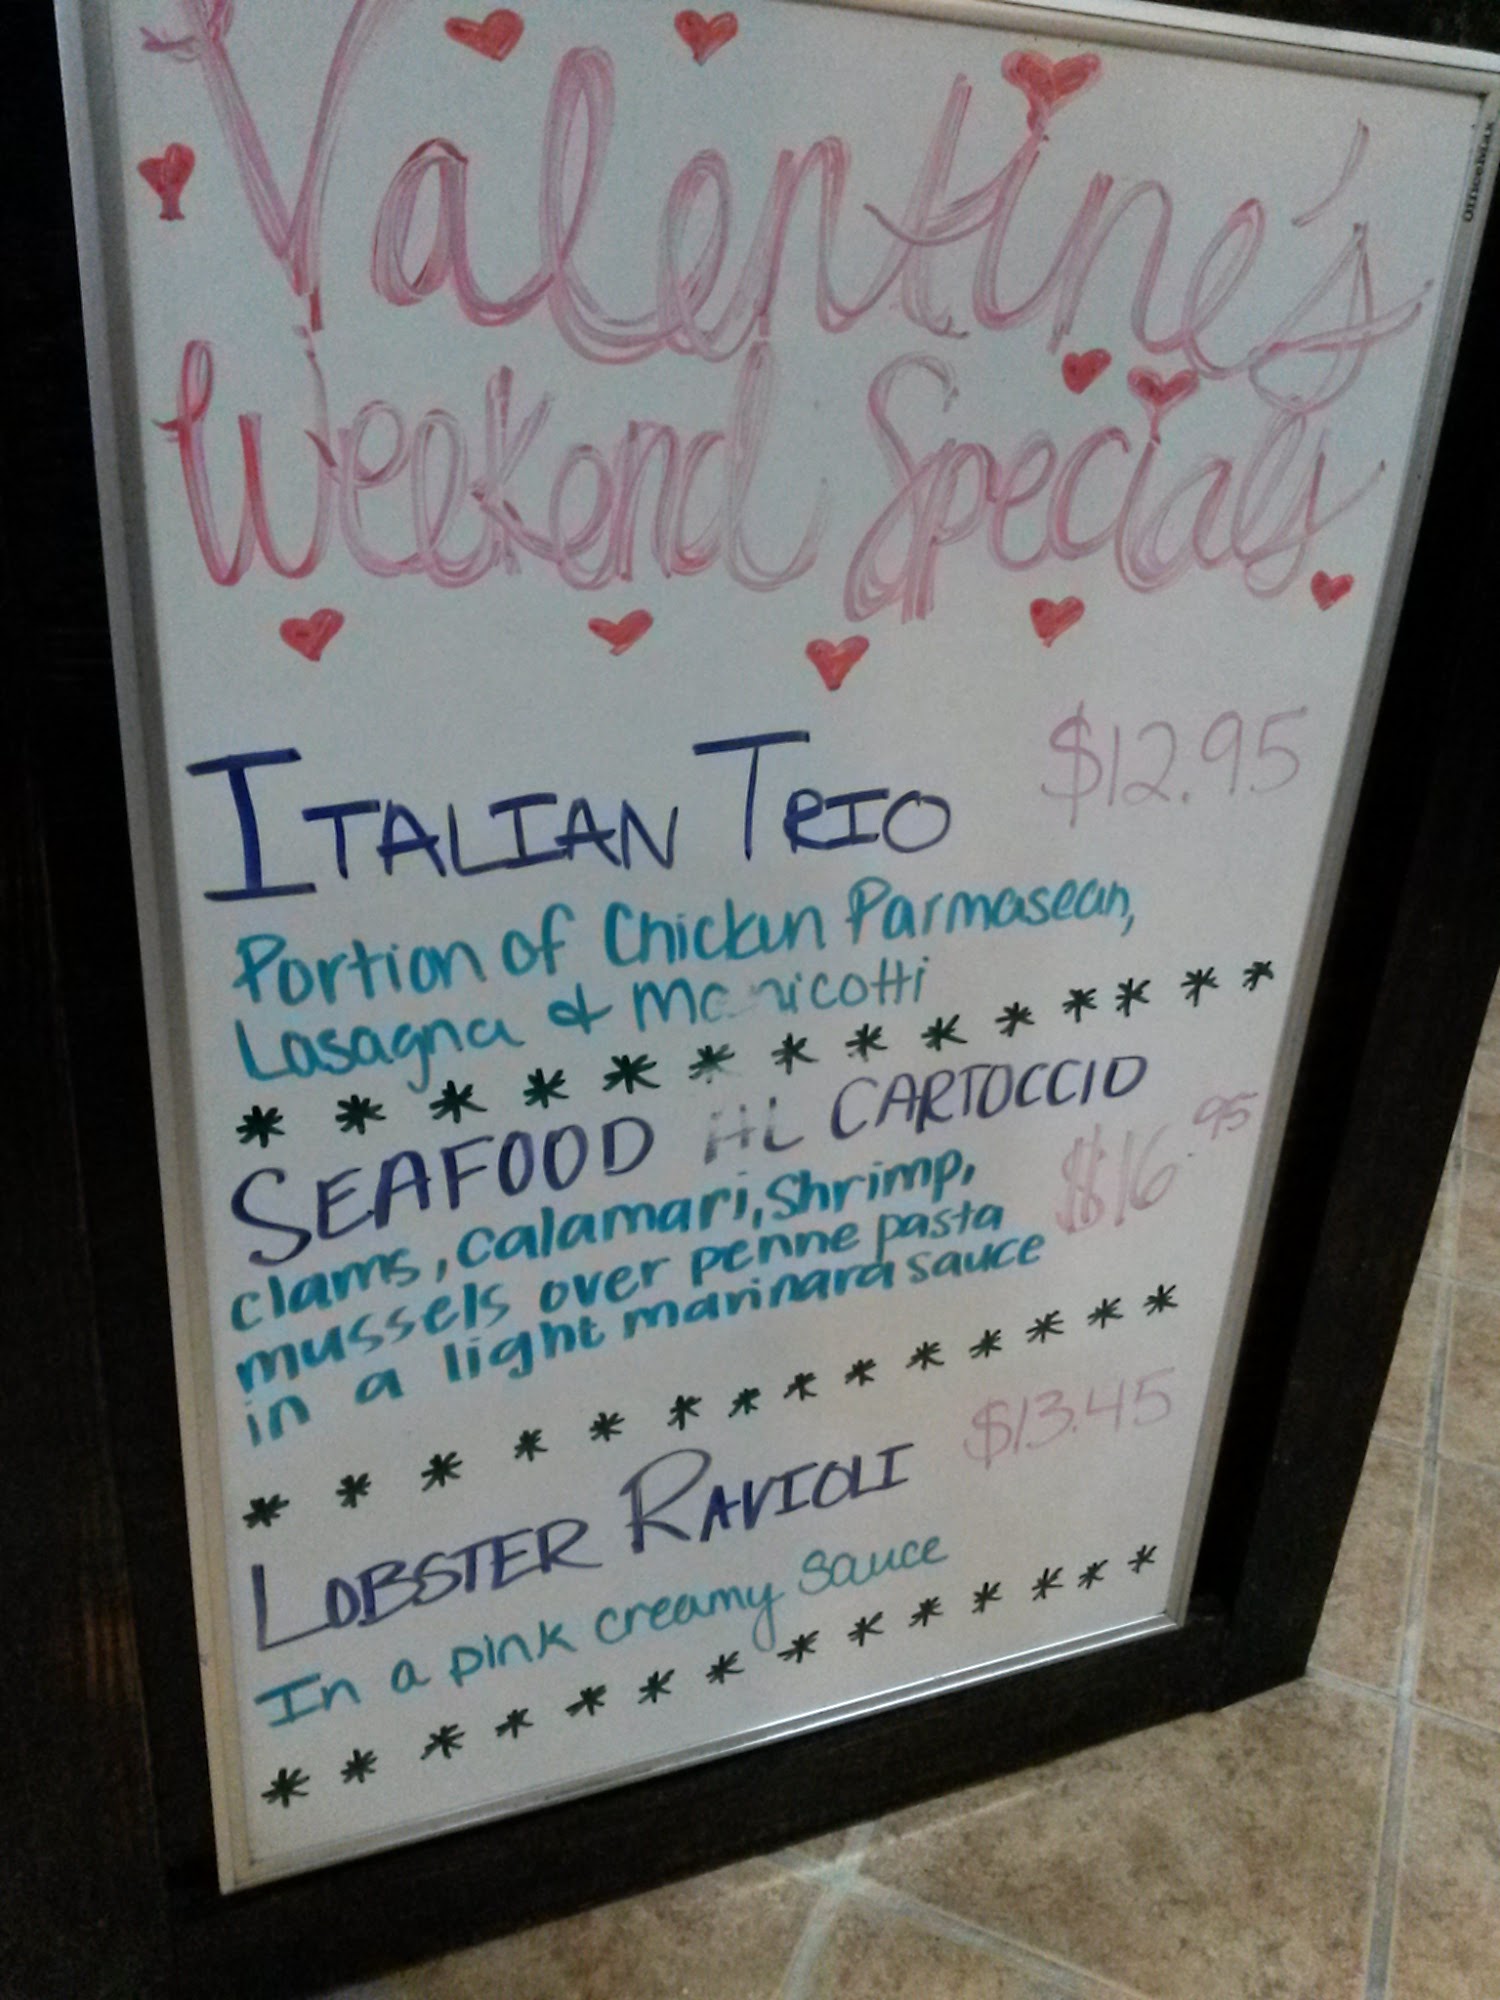 Valentine's
Weekend Specials
ITALIAN TRIO $12.95
Portion of Chicken Parmasean,
Lasagna & Manicotti
* * * * * * * * * * * * * *
SEAFOOD AL CARTOCCIO
$16.95
clams, calamari, Shrimp,
mussels over penne pasta
in a light marinara sauce
* * * * * * * * * * * * * *
LOBSTER RAVIOLI $13.45
In a pink creamy sauce
* * * * * * * * * * * * * *